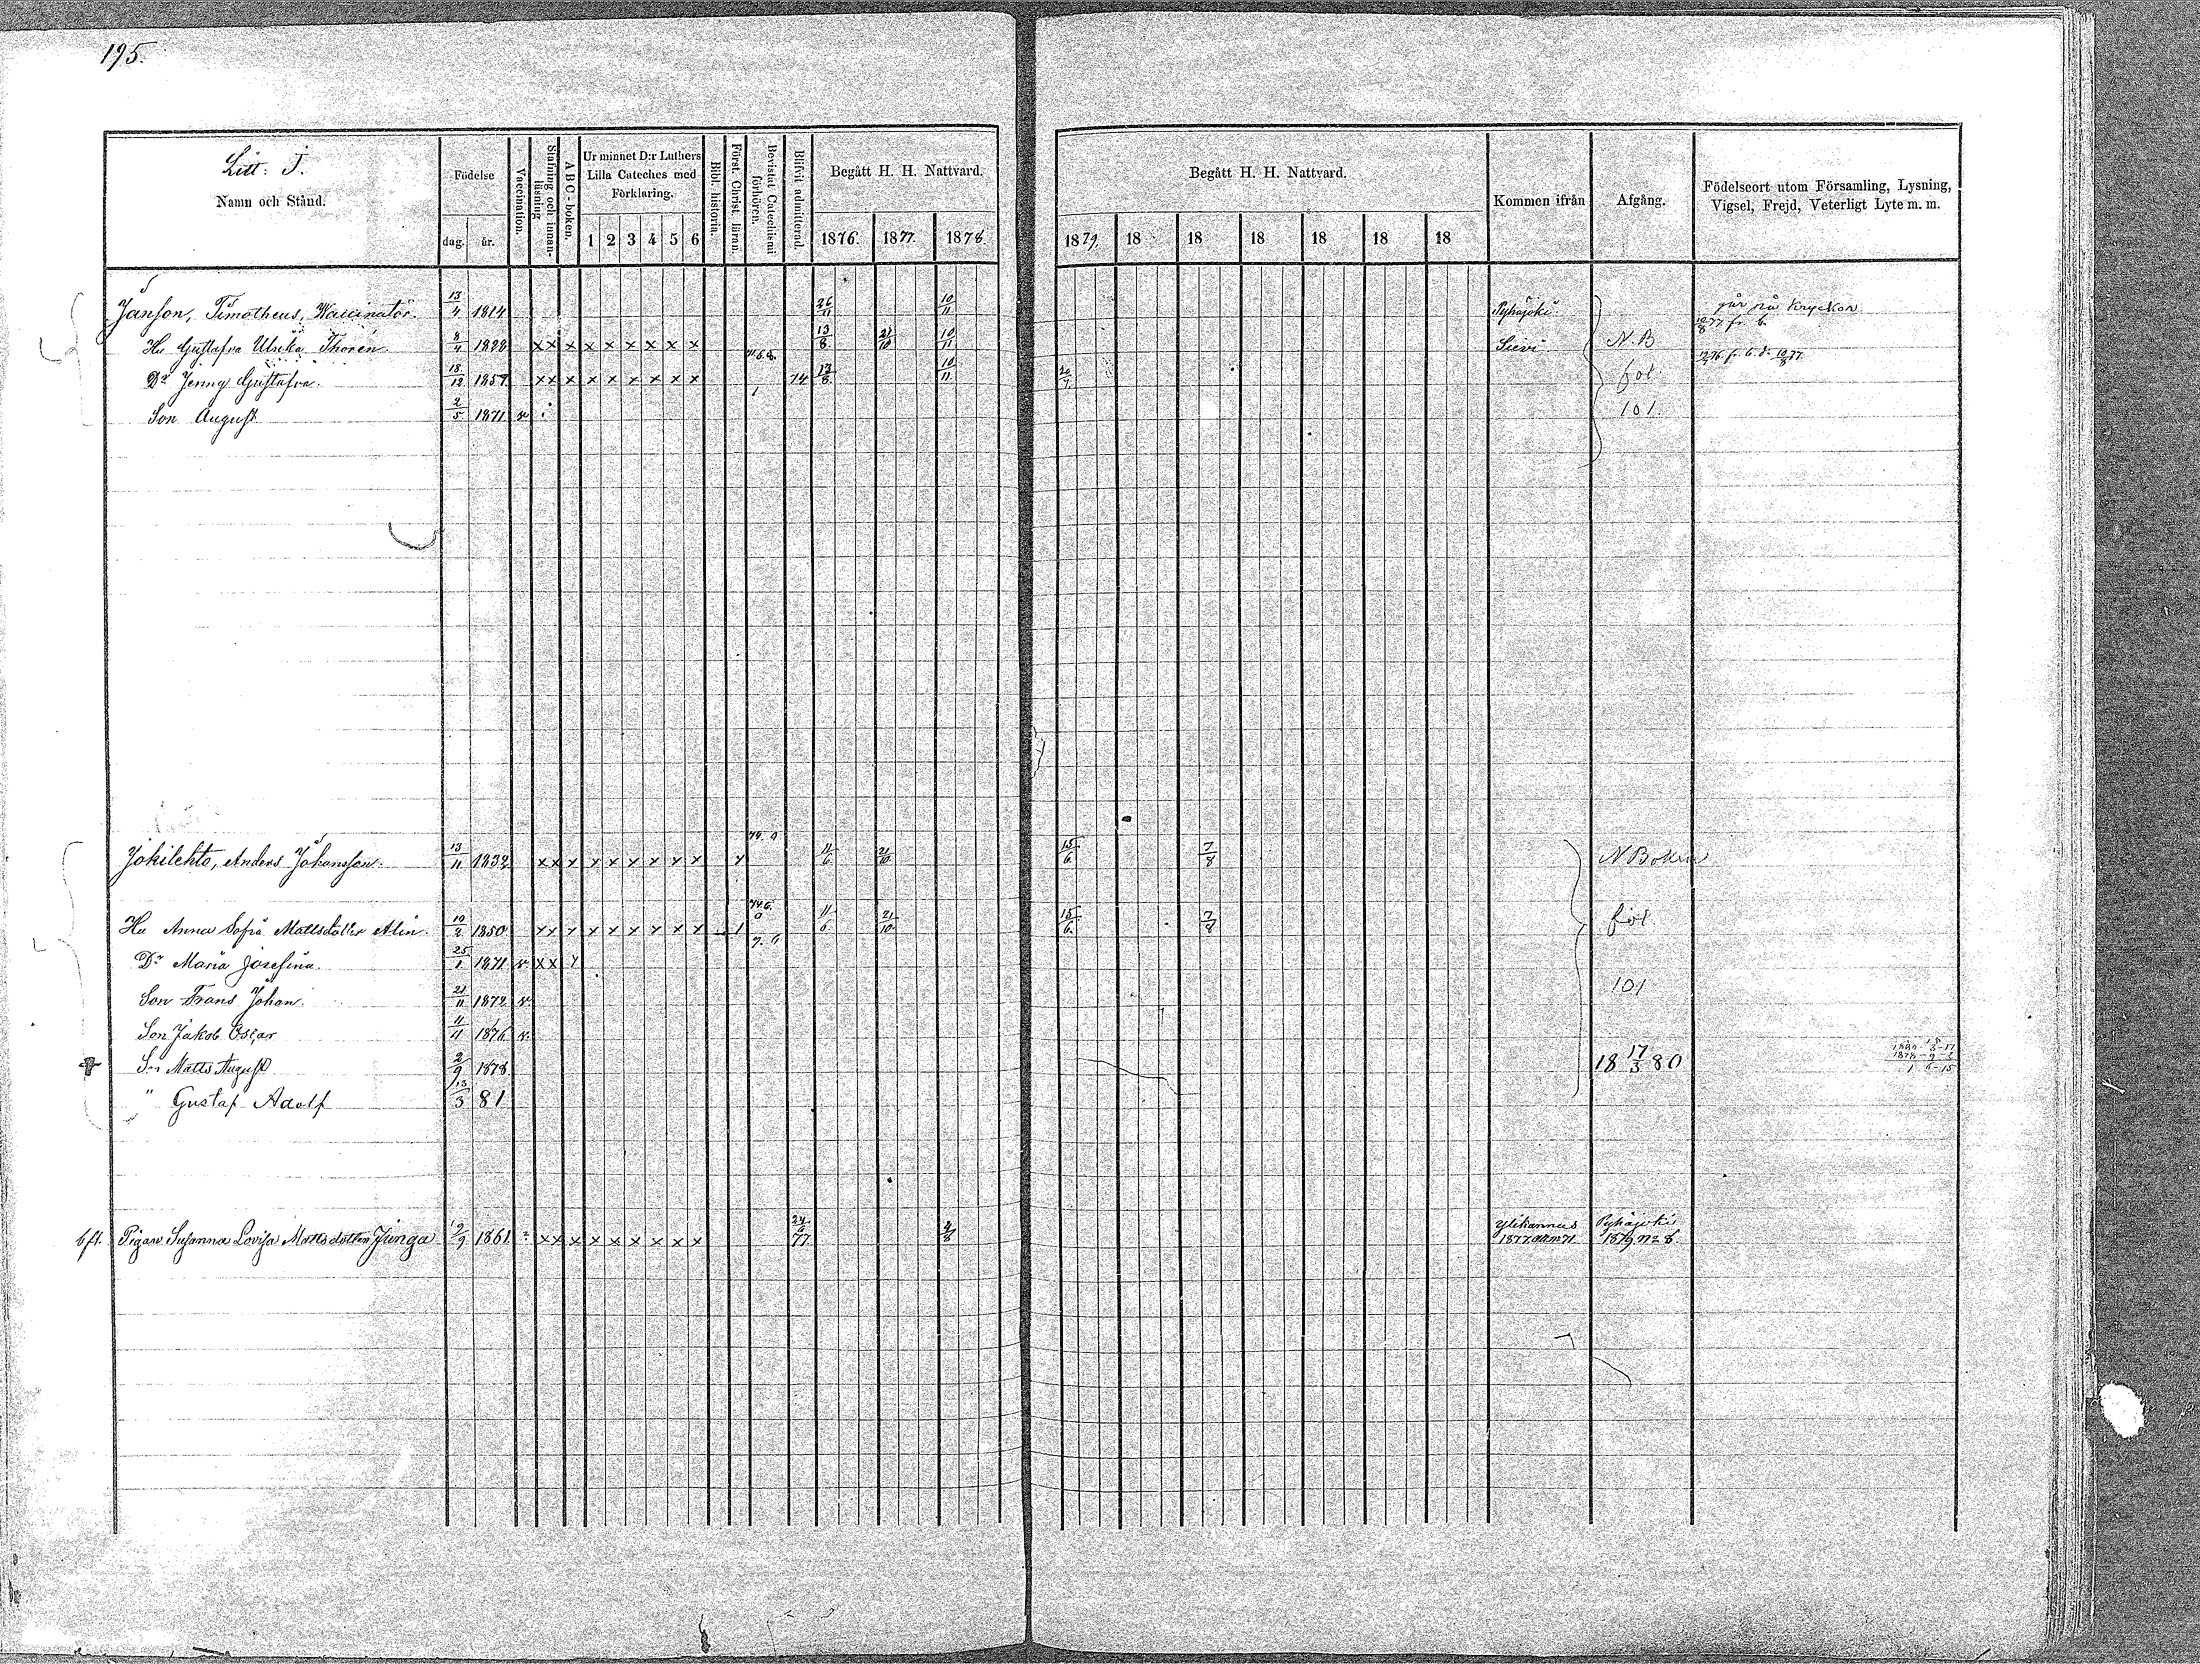 195.
Litt. J.
Namn och Stånd.
Födelse
dag. år.
Vaccination.
Stafning och innan-läsning
ABC-boken.
Ur minnet D:r Luthers Lilla Cateches med Förklaring.
1 2 3 4 5 6
Bibl. historia.
Först. Christ. läran.
Bevistat Catechismi förhören.
Blifvit admitterad.
Begått H. H. Nattvard.
1876. 1877. 1878.
Begått H. H. Nattvard.
1879 18 18 18 18 18 18
Kommen ifrån
Afgång.
Födelseort utom Församling, Lysning, Vigsel, Frejd, Veterligt Lyte m. m.
Janson, Timotheus, Waccinatör. 13/4 1814 26/11 10/11 Pyhäjoki går på Kryckor
Hu Gustafva Ulrika Thorén. 8/4 1828 x x x x x x x x x 13/8 21/10 10/11 Sievi N. B
Dr Jenny Gustafva. 18/12 1857 x x x x x x x x x 74 13/8 10/11 fol
Son August 2/5 1871 v 101.
Jokilehto, Anders Johansson. 13/11 1832 x x x x x x x x x 11/6 21/10 15/6 7/8 N Boken
Hu Anna Sofia Mattsdotter Alin. 10/2 1850 x x x x x x x x x 11/6 21/10 15/6 7/8 fol
Dr Maria Josefina. 25/1 1871 v x x
Son Frans Johan. 21/11 1872 v 101
Son Jakob Oscar 11/11 1876 v.
Sn Matts August 2/9 1878 18 17/3 80
" Gustaf Adolf 13/3 81
Pigan Susanna Lovisa Mattsdotter Junga 2/9 1861 x x x x x x x x x 24/6 77 4/8 Ylikannus Pyhäjoki
1877 att n 71 1879 n:o 8.